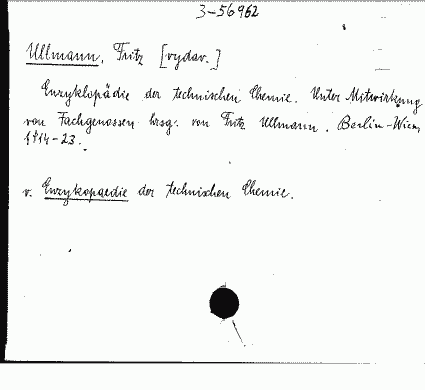 3-56962
Ullmann, Fritz [vydav.]
Enzyklopädie der technischen Chemie. Unter Mitwirkung
von Fachgenossen hrsg. von Fritz Ullmann. Berlin-Wien,
1914-23.
v. Enzykopaedie der technischen Chemie.